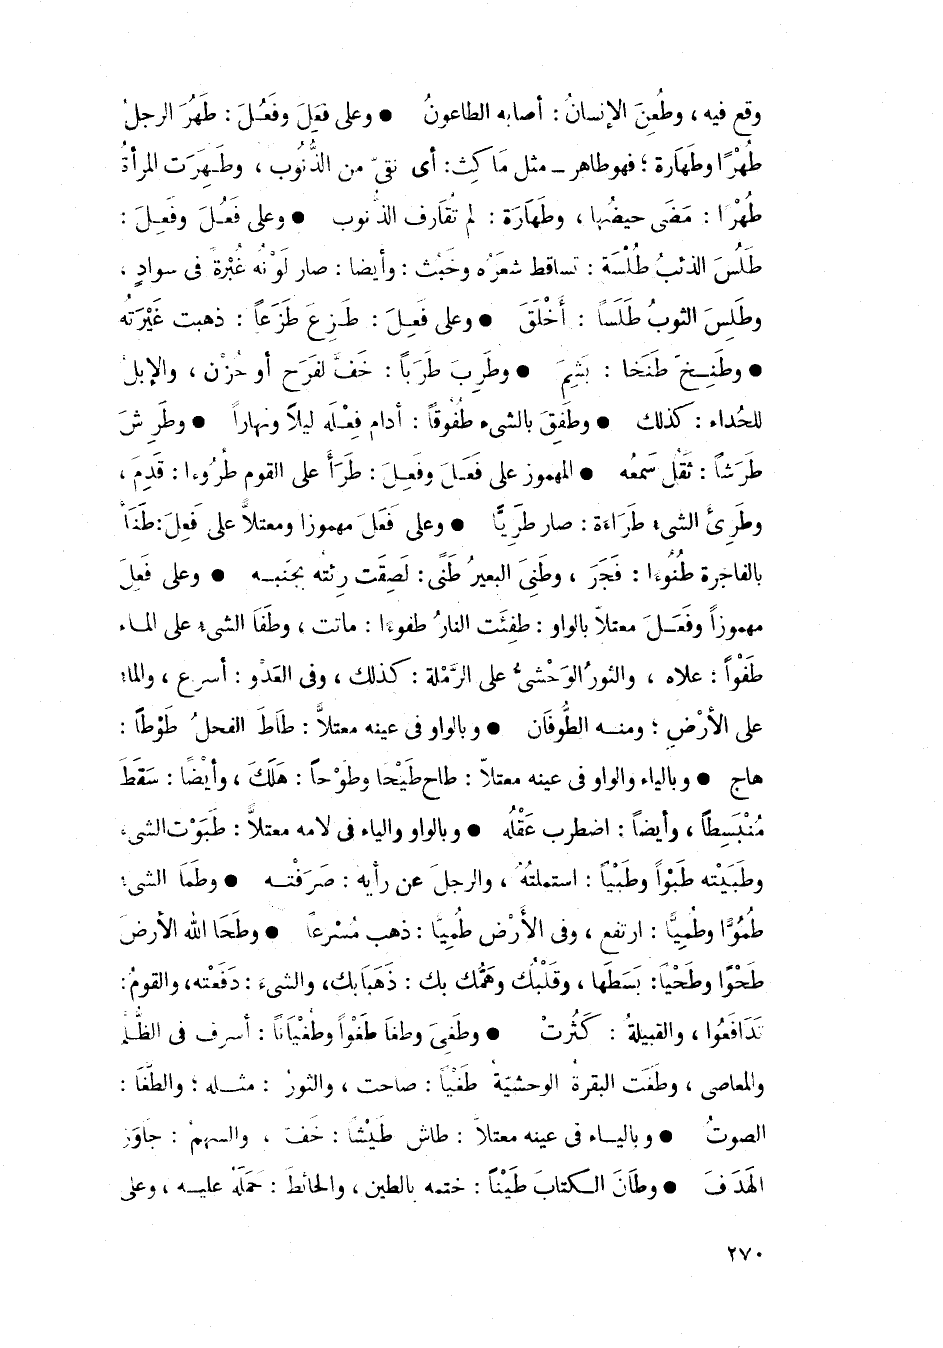 وقع فيه ، وطُعِنَ الإنسانُ : أصابه الطاعونُ ● وعلى فَعَلَ وفَعُـلَ : طَهُرَ الرجلُ
طُهْرًا وطَهَارة ؛ فهوطاهر ــ مثل مَاكِث : أى نقىّ من الذُّنُوب ، وطَـهِرَت المرأةُ
طُهْرًا : مَضَى حيضُها ، وطَهَارَة : لم تُقَارف الذنوب ● وعلى فَعُلَ وفَعِـلَ :
طَلُسَ الذئبُ طُلْسَة : تساقط شعَرُه وخَبُث : وأيضا : صار لَوْنُه غُبْرةً فى سوادٍ ،
وطَلِسَ الثوبُ طَلَساً : أَخْلَقَ ● وعلى فَعِـلَ : طَـزِعَ طَزَعاً : ذهبت غَيْرَتُه
● وطَنِـخَ طَنَخا : بَشِمَ ● وطَرِبَ طَرَباً : خَفَّ لفَرَح أو حُزْن ، والإبلُ
للحُداء : كذلك ● وطَفِقَ بالشىء طُفُوقاً : أدام فِعْـلَه ليلًا ونهاراً ● وطَرِشَ
طَرَشاً : ثَقُل سَمعُه ● المهموز على فَعَـلَ وفَعِـلَ : طَرَأَ على القوم طُرُوءا : قَدِمَ ،
وطَرِئَ الشىء طَرَاءَة : صار طَرِيًّا ● وعلى فَعَلَ مهموزا ومعتلًا على فَعِلَ : طَنَأَ
بالفاجرة طُنُوءًا : فَجَرَ ، وطَنِىَ البعيرُ طَنًى : لَصِقَت رِئتُه بجَنبـه ● وعلى فَعِلَ
مهموزاً وفَعَـلَ معتلاّ بالواو : طفِئَت النارُ طفوءًا : ماتت ، وطَفَا الشىء على المـاء
طَفْواً : علاه ، والثورُ الوَحْشىُّ على الرَّمْلة : كذلك ، وفى العَدْو : أسرع ، والماء
على الأرْض ؛ ومنـه الطُّوفَان ● وبالواو فى عينه معتلاًّ : طَاطَ الفحلُ طَوْطاً :
هاج ● وبالياء والواو فى عينه معتلاّ : طاح طَيْحا وطَوْحاً : هَلَكَ ، وأيْضًا : سَقَطَ
مُنْبَسِطاً ، وأيضاً : اضطرب عَقْلُه ● وبالواو والياء فى لامه معتلاًّ : طَبَوْت الشىء
وطَبَيْته طَبْواً وطَبْياً : استملتُهُ ، والرجلَ عن رأيه : صَرَفْتـه ● وطَمَا الشىء
طُمُوًّا وطُمِيًّا : ارتفع ، وفى الأَرْض طُمِيًّا : ذهب مُسْرعاً ● وطَحَا الله الأرضَ
طَحْوًا وطَحْياً : بَسَطَها ، وقَلْبُك وهَمُّك بك : ذَهَبَا بك ، والشىءَ : دَفَعْته ، والقومُ :
تَدَافَعُوا ، والقبيلةُ : كَثُرتْ ● وطَغِىَ وطغَا طَغْواً وطُغْيَاناً : أسرف فى الظُّلْم
والمعاصى ، وطَغَت البقرةُ الوحشيّةُ طَغْياً : صاحت ، والثورُ : مثـله ؛ والطَّغَا :
الصوتُ ● وباليـاء فى عينه معتلاً : طاش طَيْشًا : خَفَّ ، والسهمُ : جَاوَزَ
الهَدَفَ ● وطَانَ الـكتابَ طَيْناً : ختمه بالطين ، والحائطَ : حَمَلَهُ عليـه ، وعلى
٢٧٠